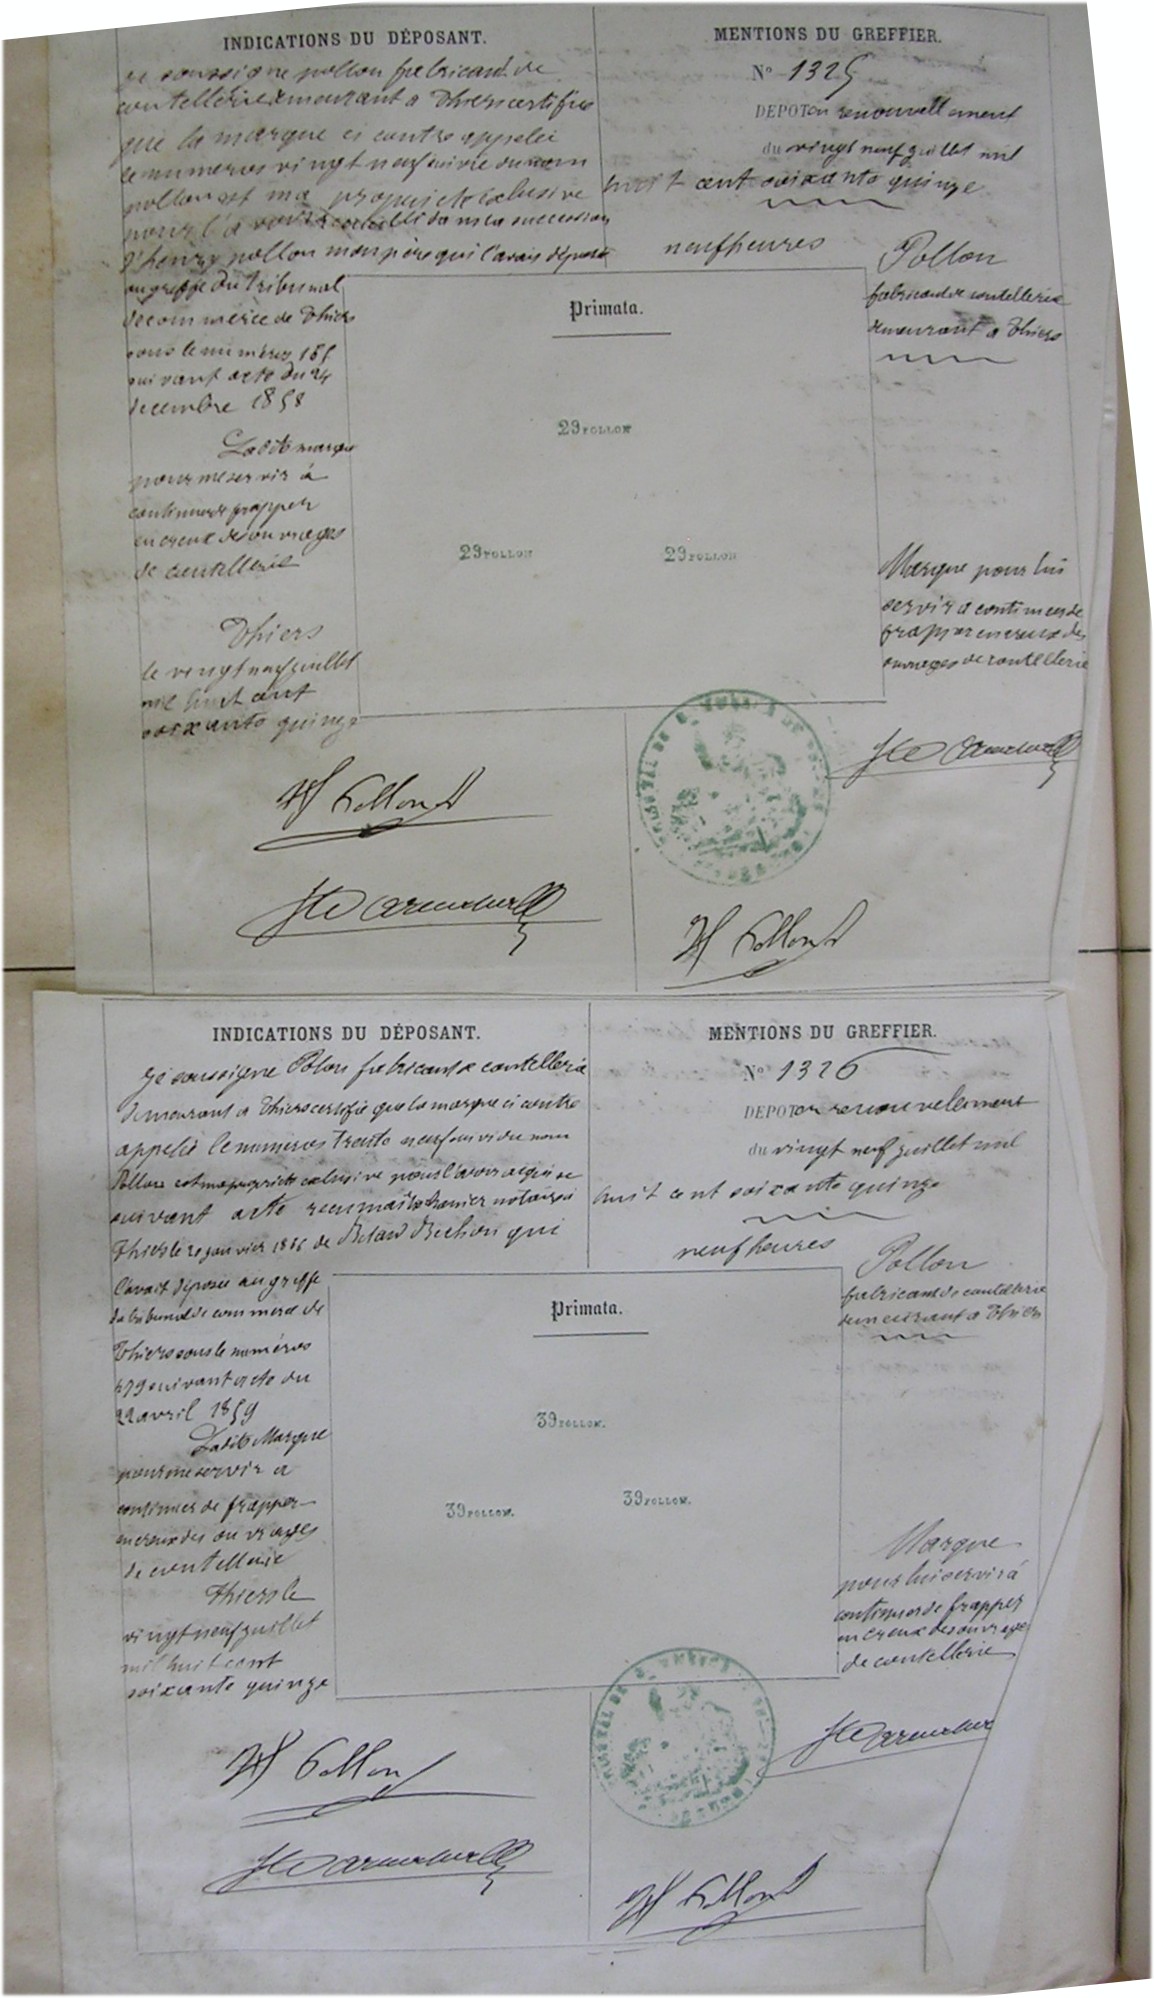 INDICATIONS DU DÉPOSANT.
je soussigne pollon fabricant de
coutellerie demeurant a Thiers certifie
que la marque ci contre appelée
le numeros vingt neuf suivie du nom
pollon est ma propriete exclusive
pour l'avoir recueilli dans la succession
d'henry pollon mon père qui l'avais déposé
au greffe du tribunal
de commerce de Thiers
sous le numéros
suivant acte du 24
decembre 1858
Ladite marque
pour me servir à
continuer de frapper
en creux des ouvrages
de coutellerie
Thiers
le vingt neuf juillet
mil huit cent
soixante quinze
Pollon
MENTIONS DU GREFFIER.
N° 1325
DEPOT en renouvellement
du vingt neuf juillet mil
huit cent soixante quinze
neuf heures
Pollon
fabricant de coutellerie
demeurant a Thiers
Primata.
29 POLLON
29 POLLON
29 POLLON
Marque pour lui
servir a continuer de
frapper en creux des
ouvrages de coutellerie
Pollon
INDICATIONS DU DÉPOSANT.
je soussigne Polon fabricant de coutellerie
demeurant a Thiers certifie que la marque ci contre
appelée le numeros trente neuf suivi du nom
Pollon est ma propriete exclusive pour l'avoir acquise
suivant acte recu maitre notaire a
Thiers le janvier de Bechon qui
l'avait déposée au greffe
du tribunal de commerce de
Thiers sous le numéros
479 suivant acte du
22 avril 1859
Ladite Marque
pour me servir a
continuer de frapper
en creux des ouvrages
de coutellerie
Thiers le
vingt neuf juillet
mil huit cent
soixante quinze
Pollon
MENTIONS DU GREFFIER.
N° 1326
DEPOT en renouvelement
du vingt neuf juillet mil
huit cent soixante quinze
neuf heures
Pollon
fabricant de coutellerie
demeurant a Thiers
Primata.
39 POLLON.
39 POLLON.
39 POLLON.
Marque
pour lui servir à
continuer de frapper
en creux des ouvrages
de coutellerie
Pollon